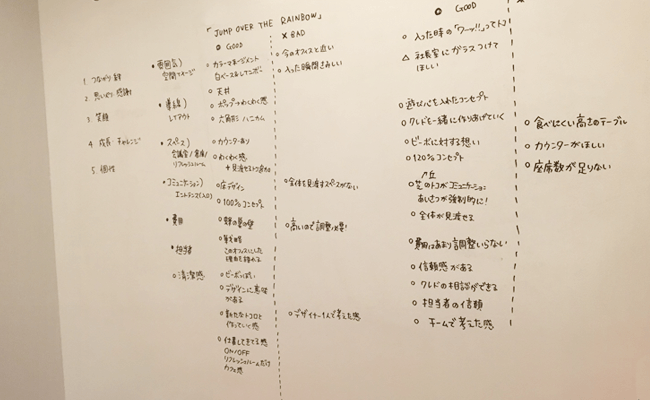 「JUMP OVER THE RAINBOW」
○ GOOD
× BAD
○ GOOD
×
1 つながり 絆
2 思いやり 感謝
3 笑顔
4 成長・チャレンジ
5 個性
・雰囲気)
空間イメージ
・導線)
レイアウト
・スペース)
会議室/倉庫/
リフレッシュルーム
・コミュニケーション)
エントランス(入口)
・費用
・担当者
○ 清潔感
○ カラーマネージメント
白ベース&レインボー
○ 天井
わくわく感
○ 六角形 ハニカム
○ カウンターあり
○ わくわく感
○ 床デザイン
○ 100%コンセプト
このオフィスにした
○ ビーボっぽい
○ デザインに意味
がある
○ 新たなトコロと
作っていく感
○ 仕事してきてる感
ON/OFF
リフレッシュルームだけ
カフェ感
○ 今のオフィスと近い
○ 入った瞬間さみしい
○ 全体を見渡すスペースがない
○ 高いので調整必要!
○ デザイナー1人で考えた感
○ 入った時の「ワーッ!!」って
△ 社長室にガラスつけて
ほしい
○ 遊び心を入れたコンセプト
○ クレドを一緒に作りあげていく
○ ビーボに対する想い
○ 120%コンセプト
コミュニケーション
あいさつが強制的に!
○ 全体が見渡せる
費用はあまり調整いらない
○ 信頼感がある
○ クレドの相談ができる
○ 担当者の信頼
○ チームで考えた感
○ 食べにくい高さのテーブル
○ カウンターがほしい
○ 座席数が足りない